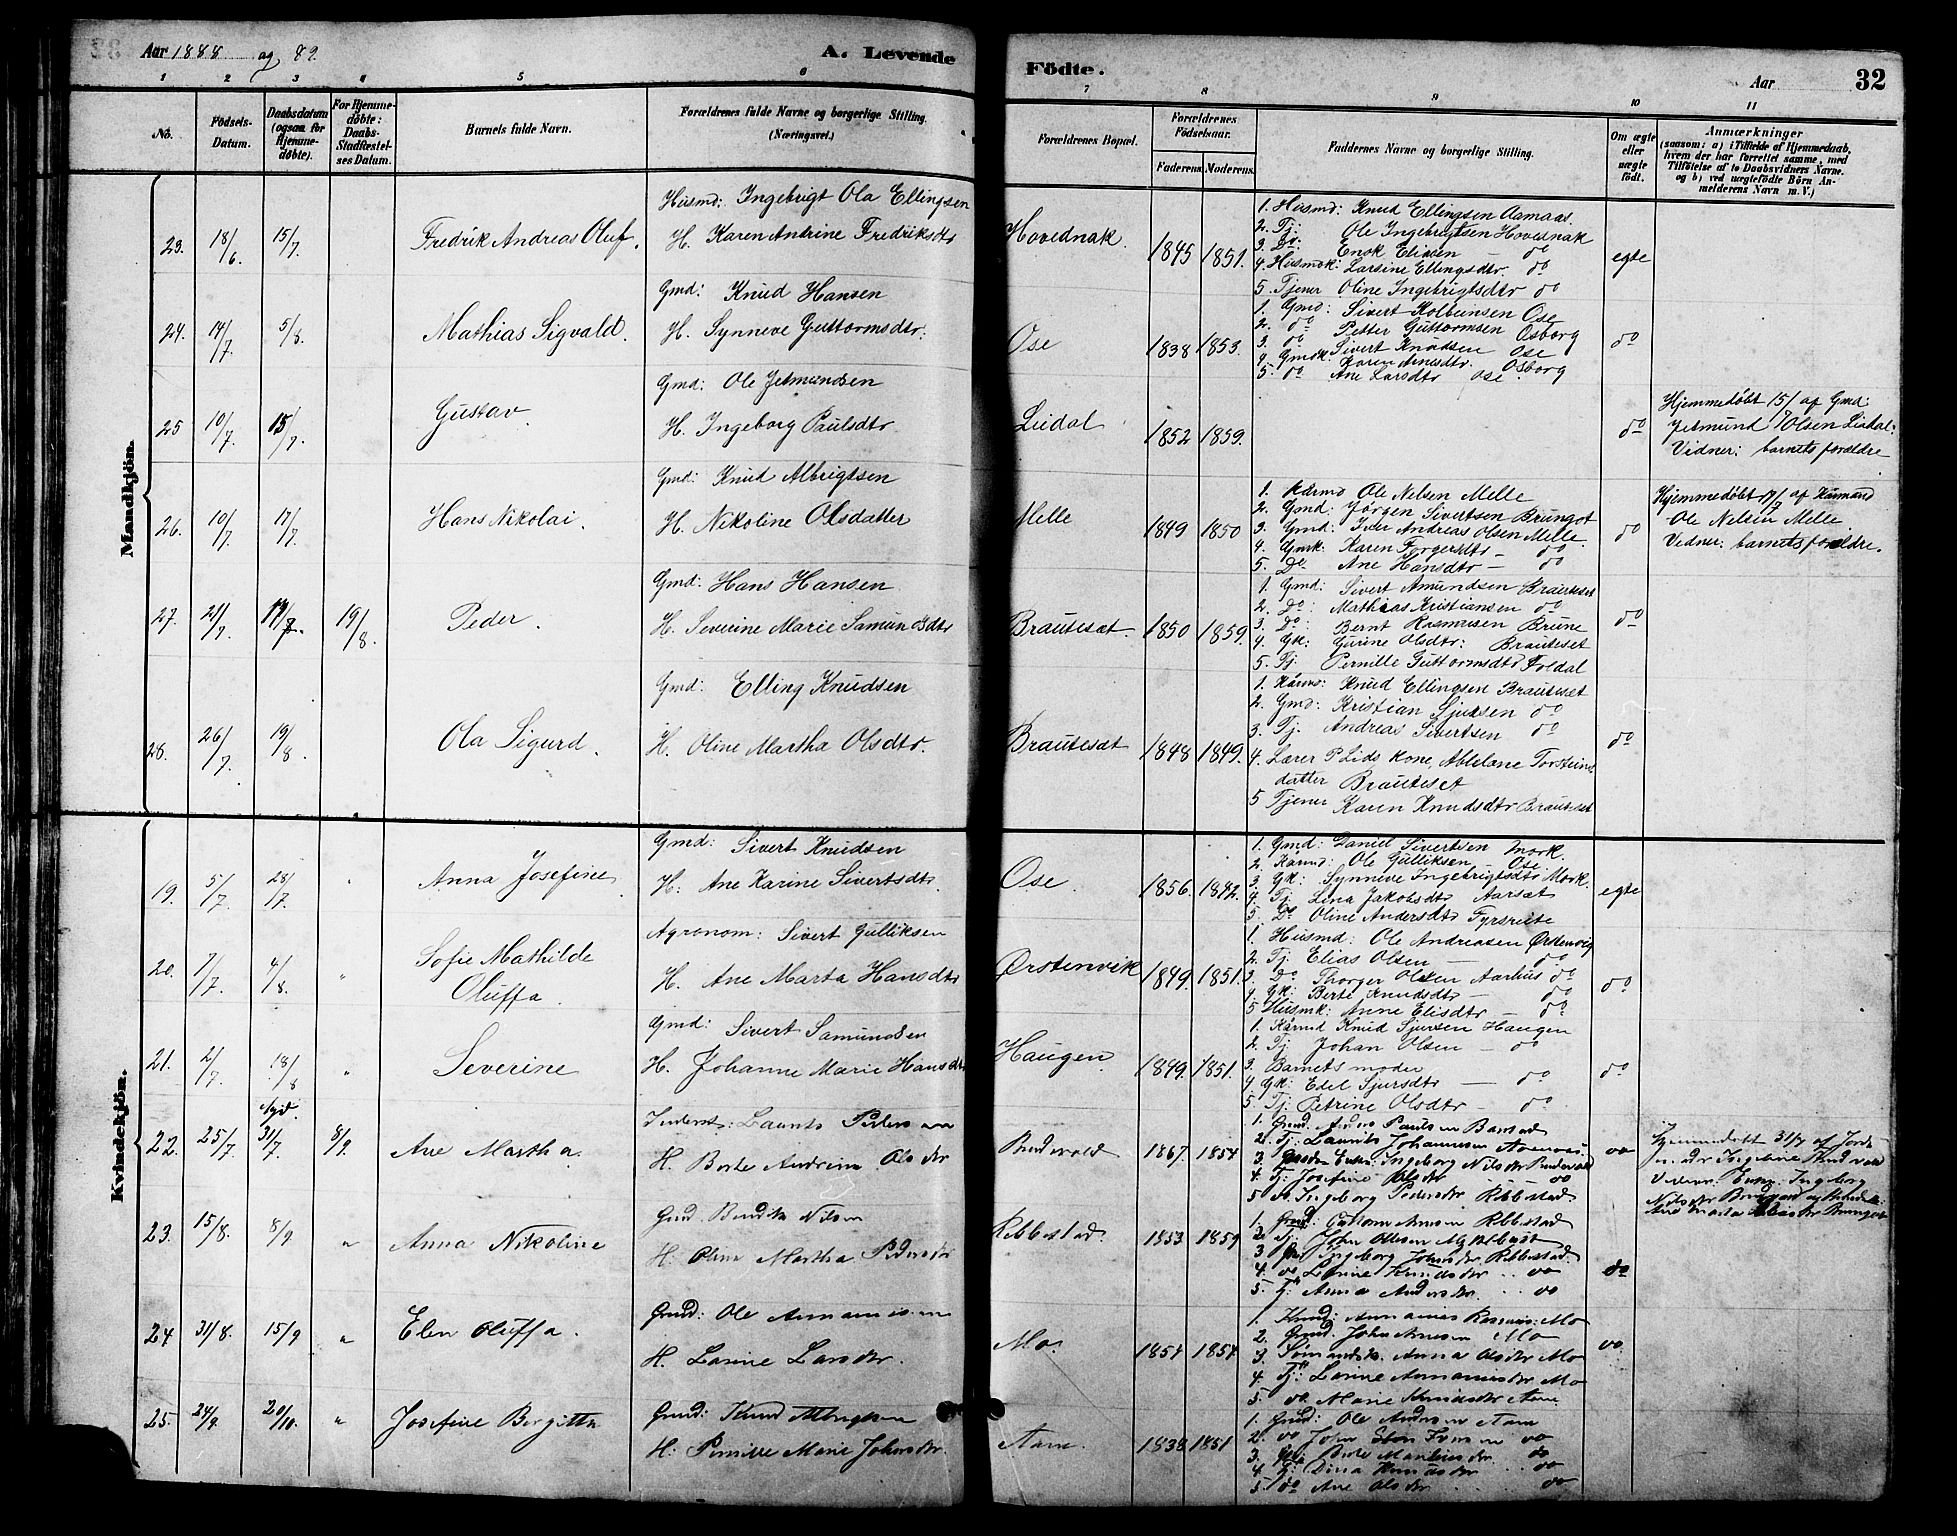 Aar 1888 og 89.
A. Levende
Födte.
Aar
32
1 2 3 4 5 6 7 8 9 10 11
No.
Födsels-Datum.
Daabsdatum (ogsaa for Hjemmedöbte).
For Hjemmedöbte: Daabs-Stadfæstelses Datum.
Barnets fulde Navn.
Forældrenes fulde Navne og borgerlige Stilling. (Næringsvei.)
Forældrenes Bopæl.
Forældrenes Födselsaar.
Faderens. Moderens.
Faddernes Navne og borgerlige Stilling.
Om ægte eller uægte födt.
Anmærkninger
(saasom: a) i Tilfælde af Hjemmedaab, hvem der har forrettet samme, med Tilföielse af to Daabsvidners Navne. og b) ved uægtefödte Börn Anmelderens Navn m. V.)
Mandkjön.
23. 18/6 15/7 Fredrik Andreas Oluf.
Husmd: Ingebrigt Ola Ellingsen
H. Karen Antrine Fredriksdtr
Hovednak. 1845 1851.
1. Husmd: Knud Ellingsen Aamaas
2. Tj: Ole Ingebrigtsen Hovednak
3. Do: Enok Eliasen — do
4. Husmdk: Larsine Ellingsdtr. do
5. Tjener Oline Ingebrigtsdtr do
egte
24. 14/7 5/8 Mathias Sigvald.
Gmd: Knud Hansen
H. Synneve Guttormsdtr.
Ose 1838 1853.
1. Gmd: Sivert Kolbeinsen Ose
2. do Petter Guttormsen Osborg
3. do Sivert Knudsen Ose
4. Gmdk Karen Arnesdtr. Osborg
5. do Ane Larsdtr Ose
do
25 10/7 15/7 Gustav
Gmd: Ole Jetmundsen
H. Ingeborg Paulsdtr
Liedal 1852 1859.
do
Hjemmedøbt 15/7 af Gmd:
Jetmund Olsen Liedal.
Vidner: barnets forældre
26. 10/7 17/7 Hans Nikolai.
Gmd: Knud Albrigtsen
H. Nikoline Olsdatter
Melle 1849 1850
1. Kårmd Ole Nelsen Melle
2. Gmd: Jörgen Sivertsen Brungot
3. Gmd: Iver Andreas Olsen Melle
4. Gmk: Karen Torgersdtr — do
5. Do Ane Hansdtr — do
do
Hjemmedøbt 17/7 af Kårmand
Ole Nelsen Melle.
Vidner: barnets forældre.
27. 21/7 19/8 Peder.
Gmd: Hans Hansen
H. Severine Marie Samundsdtr
Brautesæt. 1850 1859.
1. Gmd: Sivert Amundsen Brauteset
2. Do: Mathias Kristiansen do
3. Do: Bernt Rasmusen Brune
4. Gk: Gurine Olsdtr: Brauteset
5. Tj. Pernille Guttormsdtr Foldal
do
28. 26/7 19/8 Ola Sigurd.
Gmd: Elling Knudsen
H. Oline Martha Olsdtr.
Brautesæt 1848 1849.
1. Kårmd: Knud Ellingsen Brauteset
2. Gmd: Kristian Sjursen do
3. Tj. Andreas Sivertsen do
4. Lærer P Lids kone, Ablelane Torsteinsdatter Brauteset
5 Tjener Karen Knudsdtr Brauteset
do
Kvindekjön.
19. 5/7 28/7 Anna Josefine
Gmd: Sivert Knudsen
H: Ane Karine Sivertsdtr
Ose. 1856. 1842.
1. Gmd: Daniel Sivertsen Mork.
2. Kårmd: Ole Gulliksen — Ose
3. Gk: Synneve Ingebrigtsdtr Mork.
4. Tj: Lena Jakobsdtr Aarsæt
5. Do Oline Andersdtr
egte
20. 7/7 4/8. Sofie Mathilde Oluffa.
Agronom: Sivert Gulliksen
H. Ane Marta Hansdtr
Ørstenvik 1849. 1851.
1. Husmd: Ole Andreasen Ørstenvig
2. Tj: Elias Olsen — do
3. Do Thorger Olsen Aarhus do
4. Gk: Berte Knudsdtr — do
5. Husmk: Anne Elisdtr — do
do
21. 2/7 18/8 Severine
Gmd: Sivert Samundsen
H. Johanne Marie Hansdtr
Haugen 1849. 1851.
1. Kårmd Knud Sjursen Haugen
2. Tj Johan Olsen — do
3. Barnets moder
4. Gk: Edel Sjursdtr — do
5. Tj: Petrine Olsdtr — do
do
22. 25/7 31/7 8/9. Ane Martha.
Inderst: Laurits Pedersen
H. Berte Andrine Olsdtr
1867. 1854
2. Tj: Laurits Johannesen
4. Tj: Josefine Olsdtr — do
5 do Ingeborg Pedersdtr Ribbestad.
do
Hjemmedøbt 31/7 af Jorde-
23. 15/8. 8/9. Anna Nikoline
Gmd. Bendik Nilsen
H. Oline Martha Pedersdtr
Ribbestad 1853 1859
1. Gmd: Guttorm Arnesen Ribbestad
2. Tj: John Olesen
3. Ingeborg Johnsdtr Ribbestad.
4. do Larine Knudsdtr .. do
5. Tj: Anna Andersdtr .. do
do
24 31/8. 15/9 Elen Oluffa.
Gmd: Ole Ananiassen
H. Larine Larsdtr.
Mo. 1854 1854.
2. Gmd. John Arnesen Mo
3. Anna Olsdtr Mo
4. Tj: Larine Ananiasdtr Mo
5. do Marie Knudsdtr Aam
do.
25. 24/9. 20/10. Josefine Birgitta
Gmd: Knud Albrigtsen
H: Pernille Marie Johnsdtr.
Aam. 1838 1851
1. Gmd: Ole Andersen Aam
2. do John do
3. Berte Martinusdtr do
4. Tj: Dina Knudsdtr .. do
5. do Ane Olsdtr .. do